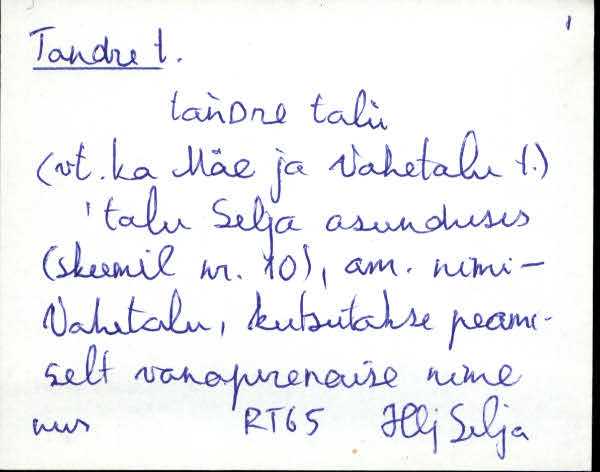 1
Tandre t.
tańdre talu̇
(vt. ka Mäe ja Vahetalu t.)
'talu Selja asunduses
(skeemil nr. 10), am. nimi-
Vahetalu, kutsutakse peami-
selt vanaperenaise nime
RT65 Hlj Selja